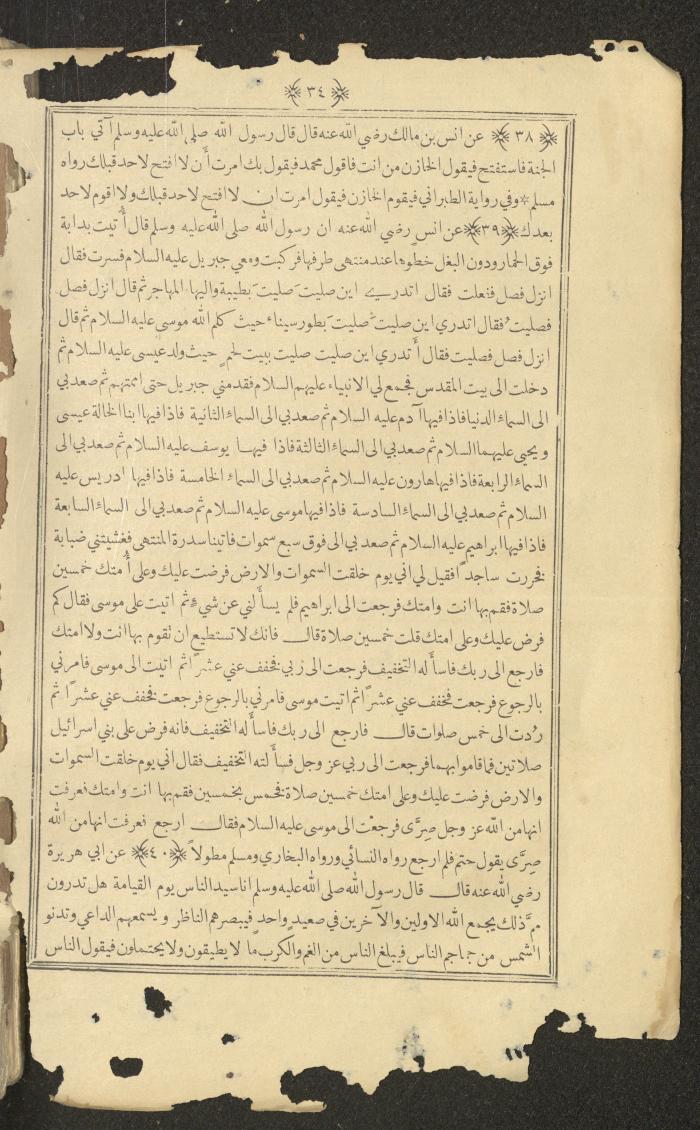 ﴿ ٣٤ ﴾
﴿ ٣٨ ﴾ عن انس بن مالك رضي الله عنه قال قال رسول الله صلى الله عليه وسلم آتي باب
الجنة فاستفتح فيقول الخازن من انت فاقول محمد فيقول بك امرت أن لا افتح لاحد قبلك رواه
مسلم * وفي رواية الطبراني فيقوم الخازن فيقول امرت ان لا افتح لاحد قبلك ولا اقوم لاحد
بعدك ﴿٣٩﴾ عن انس رضي الله عنه ان رسول الله صلى الله عليه وسلم قال أُتيت بدابة
فوق الحمار ودون البغل خطوها عند منتهى طرفها فركبت ومعي جبريل عليه السلام فسرت فقال
انزل فصل ففعلت فقال اتدري اين صليت صليت بطيبة واليها المهاجر ثم قال انزل فصل
فصليت فقال اتدري اين صليت صليت بطور سيناء حيث كلم الله موسى عليه السلام ثم قال
انزل فصل فصليت فقال أتدري اين صليت صليت ببيت لحم حيث ولد عيسى عليه السلام ثم
دخلت الى بيت المقدس فجمع لي الانبياء عليهم السلام فقدمني جبريل حتى اممتهم ثم صعد بي
الى السماء الدنيا فاذا فيها آدم عليه السلام ثم صعد بي الى السماء الثانية فاذا فيها ابنا الخالة عيسى
ويحيى عليهما السلام ثم صعد بي الى السماء الثالثة فاذا فيها يوسف عليه السلام ثم صعد بي الى
السماء الرابعة فاذا فيها هارون عليه السلام ثم صعد بي الى السماء الخامسة فاذا فيها ادريس عليه
السلام ثم صعد بي الى السماء السادسة فاذا فيها موسى عليه السلام ثم صعد بي الى السماء السابعة
فاذا فيها ابراهيم عليه السلام ثم صعد بي الى فوق سبع سموات فاتينا سدرة المنتهى فغشيتني ضبابة
فخررت ساجداً فقيل لي اني يوم خلقت السموات والارض فرضت عليك وعلى أُمتك خمسين
صلاة فقم بها انت وامتك فرجعت الى ابراهيم فلم يسألني عن شيء ثم اتيت على موسى فقال كم
فرض عليك وعلى امتك قلت خمسين صلاة قال فانك لا تستطيع ان تقوم بها انت ولا امتك
فارجع الى ربك فاسأله التخفيف فرجعت الى ربي فخفف عني عشراً ثم اتيت الى موسى فامرني
بالرجوع فرجعت فخفف عني عشراً ثم اتيت موسى فامرني بالرجوع فرجعت فخفف عني عشراً ثم
رُدت الى خمس صلوات قال فارجع الى ربك فاسأله التخفيف فانه فرض على بني اسرائيل
صلاتين فما قاموا بهما فرجعت الى ربي عز وجل فسألته التخفيف فقال اني يوم خلقت السموات
والارض فرضت عليك وعلى امتك خمسين صلاة فخمس بخمسين فقم بها انت وامتك فعرفت
انها من الله عز وجل صِرَّى فرجعت الى موسى عليه السلام فقال ارجع فعرفت انها من الله
صِرَّى يقول حتم فلم ارجع رواه النسائي ورواه البخاري ومسلم مطولاً ﴿٤٠﴾ عن ابي هريرة
رضي الله عنه قال قال رسول الله صلى الله عليه وسلم انا سيد الناس يوم القيامة هل تدرون
ممَّ ذلك يجمع الله الاولين والآخرين في صعيدٍ واحدٍ فيبصرهم الناظر ويسمعهم الداعي وتدنو
الشمس من جماجم الناس فيبلغ الناس من الغم والكرب ما لا يطيقون ولا يحتملون فيقول الناس